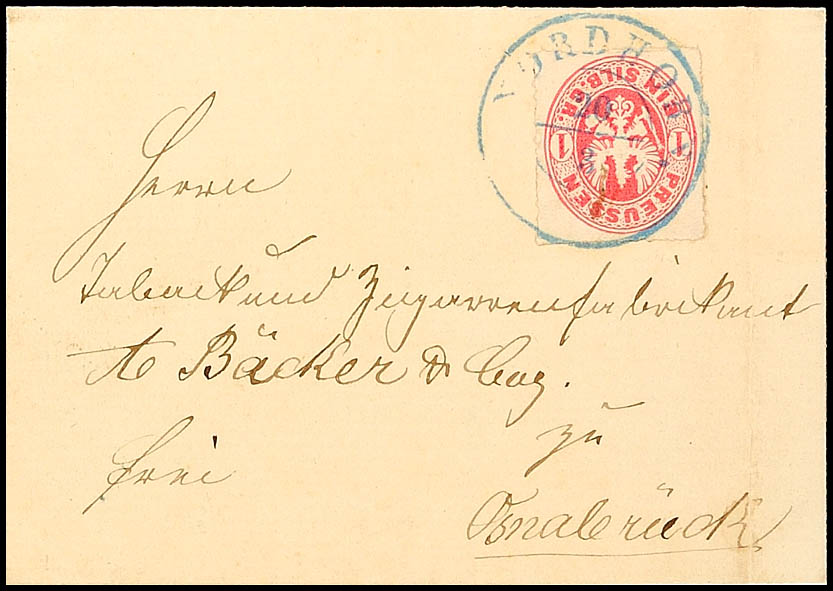 NORDHORN
20
3
EIN SILB.GR.
1 1
PREUSSEN
Herrn
Taback und Zigarrenfabrikant
A Bäcker & Coy.
zu
frei
Osnabrück